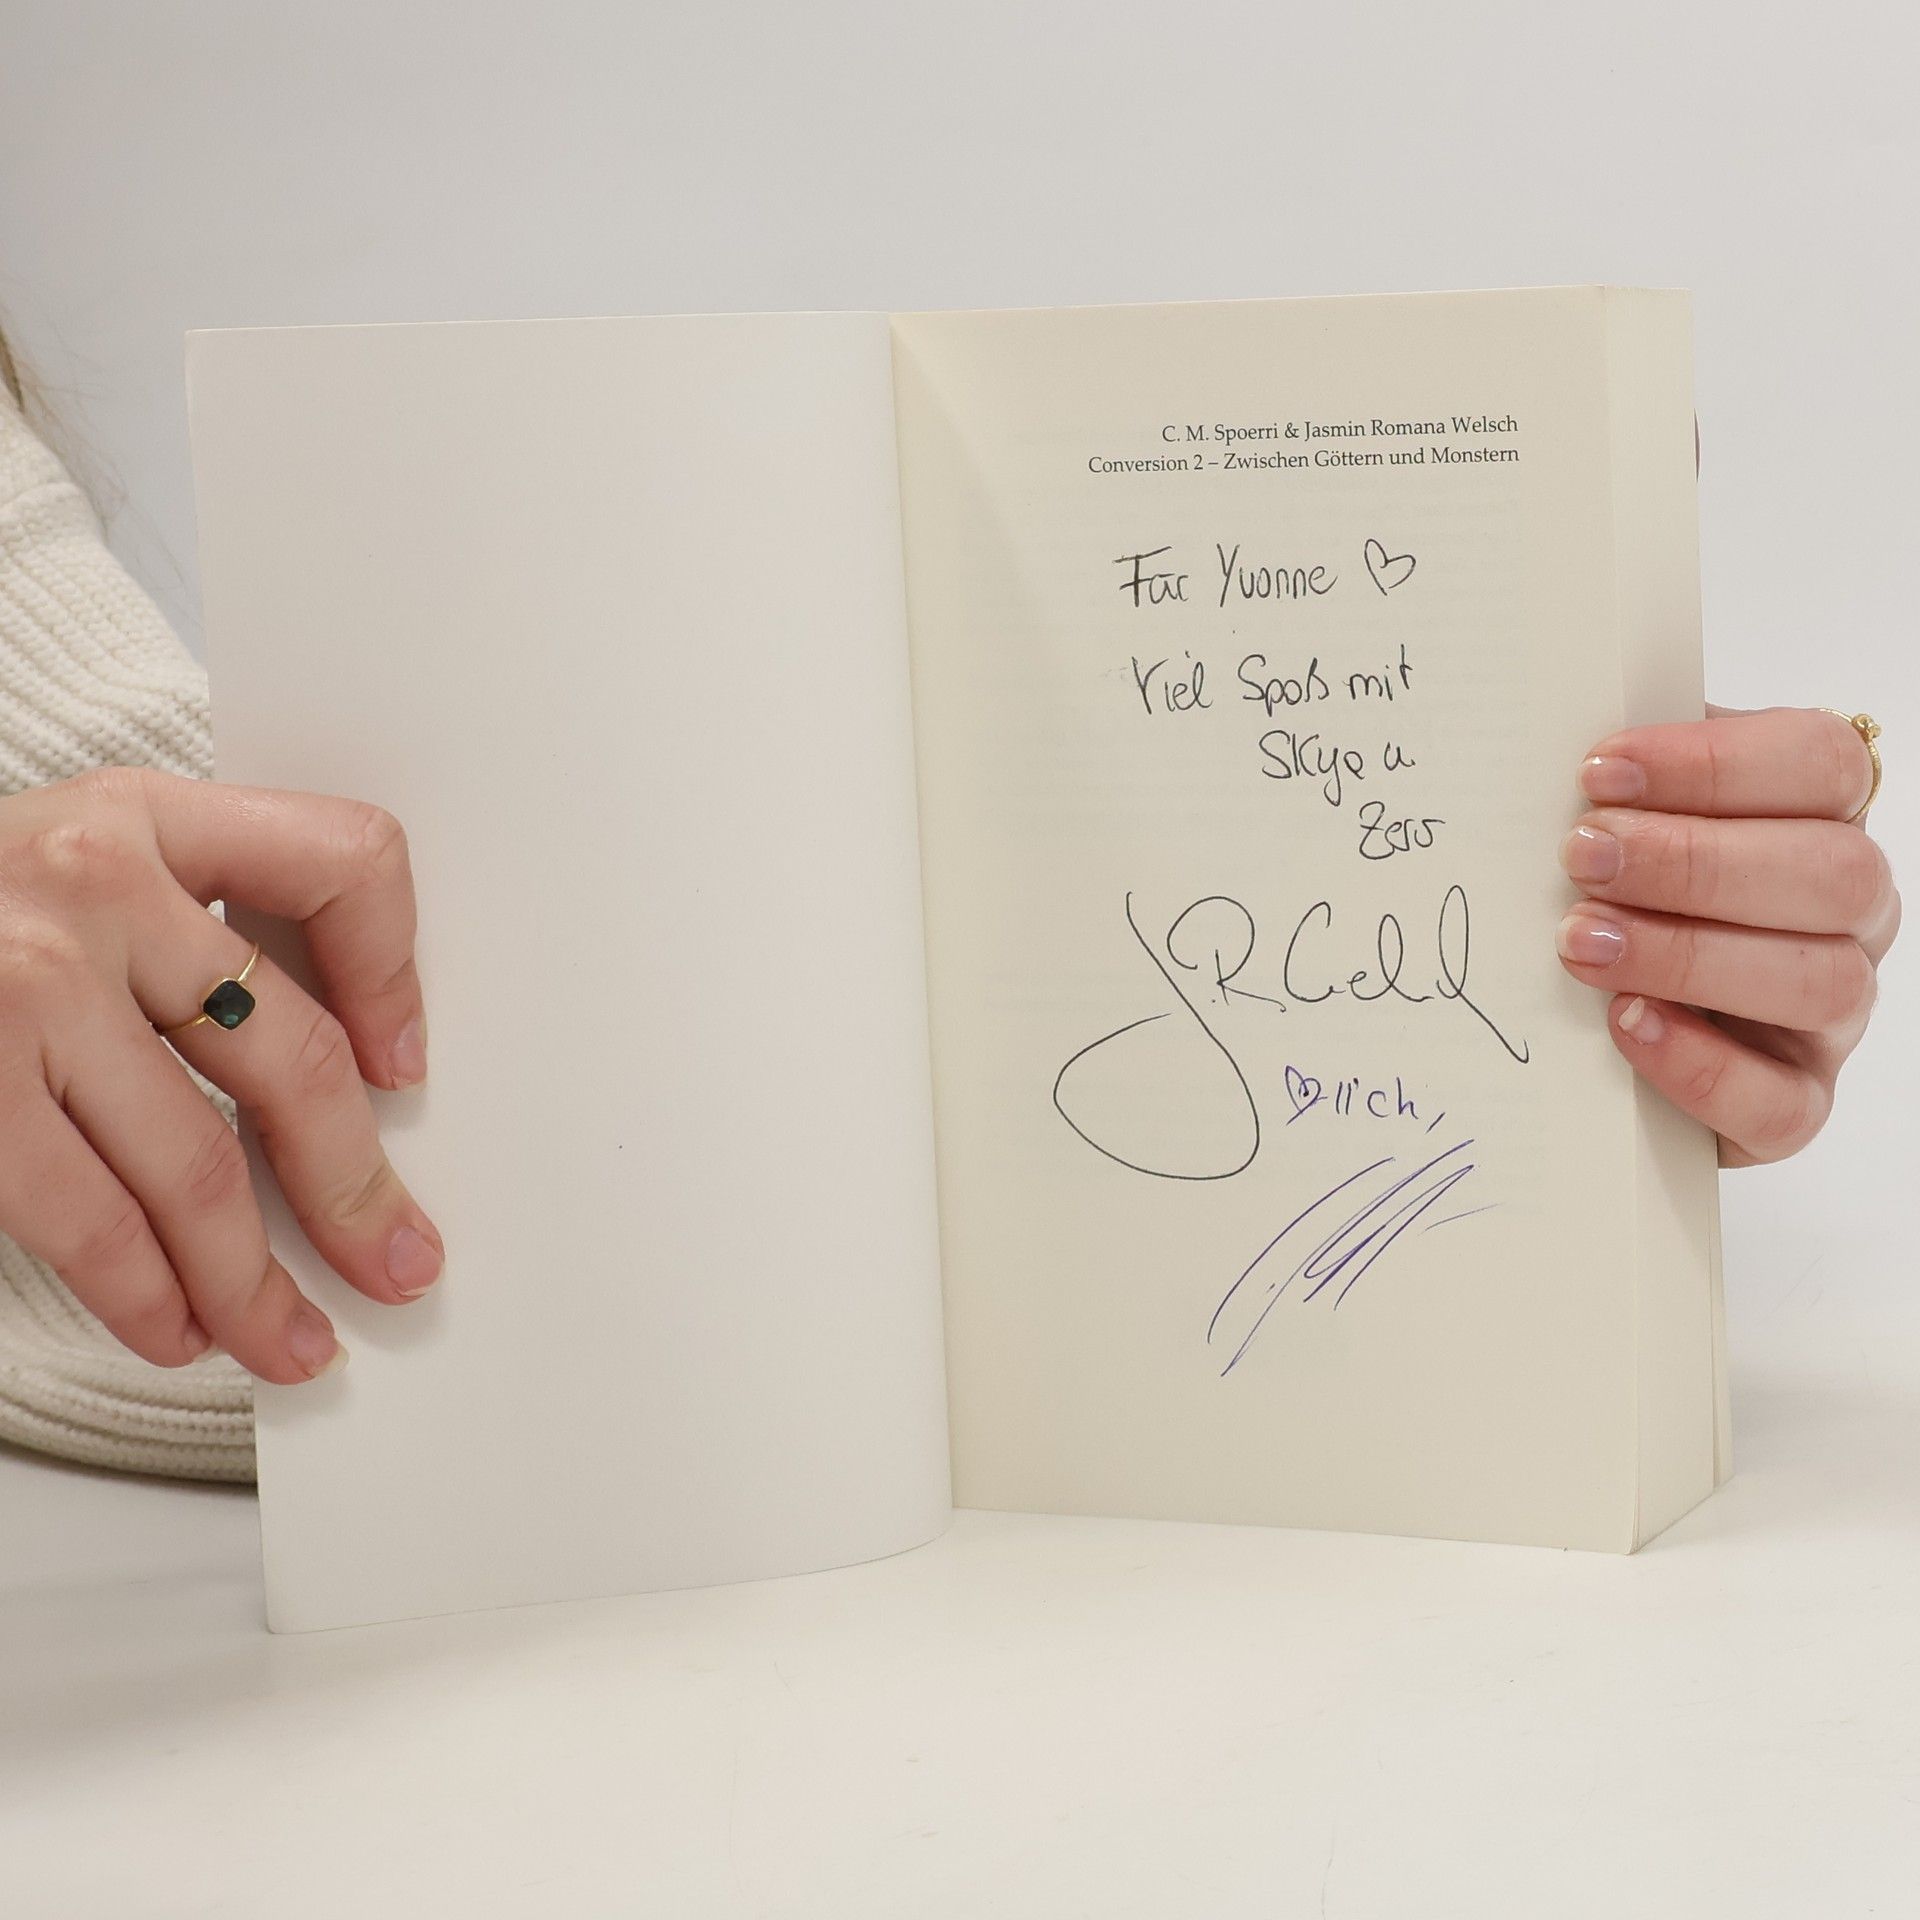 C. M. Spoerri & Jasmin Romana Welsch
Conversion 2 – Zwischen Göttern und Monstern
Für Yvonne ♡
Viel Spaß mit
Skye u.
Zero
♡llich,